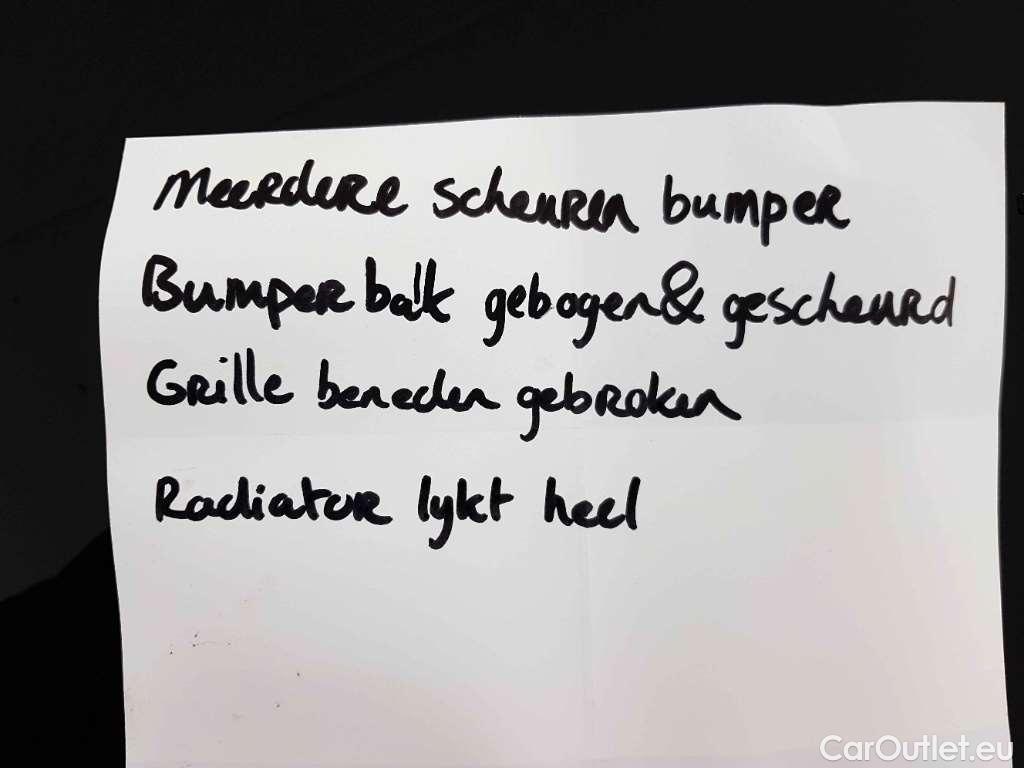 Meerdere scheuren bumper
Bumper balk gebogen & gescheurd
Grille beneden gebroken
Radiator lykt heel
CarOutlet.eu